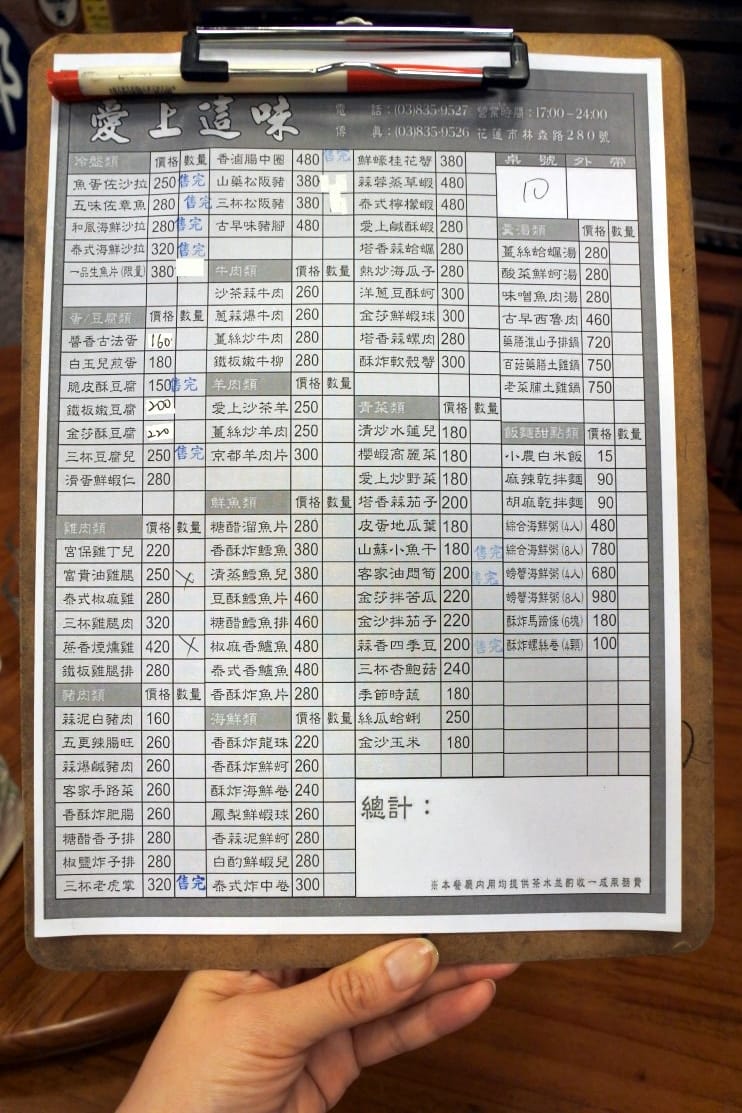 愛上這味
電 話：(03)835-9527 營業時間：17:00~24:00
傳 真：(03)835-9526 花蓮市林森路280號
冷盤類 價格 數量
魚蛋佐沙拉 250 售完
五味佐章魚 280 售完
和風海鮮沙拉 280 售完
泰式海鮮沙拉 320 售完
一品生魚片(限量) 380
蛋/豆腐類 價格 數量
醬香古法蛋 160
白玉兒煎蛋 180
脆皮酥豆腐 150 售完
鐵板嫩豆腐 200
金莎酥豆腐 220
三杯豆腐兒 250 售完
滑蛋鮮蝦仁 280
雞肉類 價格 數量
宮保雞丁兒 220
富貴油雞腿 250 X
泰式椒麻雞 280
三杯雞腿肉 320
蔗香煙燻雞 420 X
鐵板雞腿排 280
豬肉類 價格 數量
蒜泥白豬肉 160
五更辣腸旺 260
蒜爆鹹豬肉 260
客家手路菜 260
香酥炸肥腸 260
糖醋香子排 280
椒鹽炸子排 280
三杯老虎掌 320 售完
香滷腸中圈 480 售完
山藥松阪豬 380
三杯松阪豬 380
古早味豬腳 480
牛肉類 價格 數量
沙茶蒜牛肉 260
蔥蒜爆牛肉 260
薑絲炒牛肉 280
鐵板嫩牛柳 280
羊肉類 價格 數量
愛上沙茶羊 250
薑絲炒羊肉 250
京都羊肉片 300
鮮魚類 價格 數量
糖醋溜魚片 280
香酥炸鱈魚 380
清蒸鱈魚兒 380
豆酥鱈魚片 460
糖醋鱈魚排 460
椒麻香鱸魚 480
泰式香鱸魚 480
香酥炸魚片 280
海鮮類 價格 數量
香酥炸龍珠 220
香酥炸鮮蚵 260
酥炸海鮮卷 240
鳳梨鮮蝦球 260
香蒜泥鮮蚵 280
白酌鮮蝦兒 280
泰式炸中卷 300
鮮蠔桂花蟹 380
蒜蓉蒸草蝦 480
泰式檸檬蝦 480
愛上鹹酥蝦 280
塔香蒜蛤蠣 280
熱炒海瓜子 280
洋蔥豆酥蚵 300
金莎鮮蝦球 300
塔香蒜螺肉 280
酥炸軟殼蟹 300
青菜類 價格 數量
清炒水蓮兒 180
櫻蝦高麗菜 180
愛上炒野菜 180
塔香蒜茄子 200
皮蛋地瓜葉 180
山蘇小魚干 180 售完
客家油悶筍 200 售完
金莎拌苦瓜 220
金沙拌茄子 220
蒜香四季豆 200 售完
三杯杏鮑菇 240
季節時蔬 180
絲瓜蛤蜊 250
金沙玉米 180
桌號 外帶
10
羹湯類 價格 數量
薑絲蛤蠣湯 280
酸菜鮮蚵湯 280
味噌魚肉湯 280
古早西魯肉 460
藥膳淮山子排鍋 720
百菇藥膳土雞鍋 750
老菜脯土雞鍋 750
飯麵甜點類 價格 數量
小農白米飯 15
麻辣乾拌麵 90
胡麻乾拌麵 90
綜合海鮮粥(4人) 480
綜合海鮮粥(8人) 780
螃蟹海鮮粥(4人) 680
螃蟹海鮮粥(8人) 980
酥炸馬蹄條(6塊) 180
酥炸螺絲卷(4顆) 100
總計：
※本餐廳內用均提供茶水並酌收一成服務費